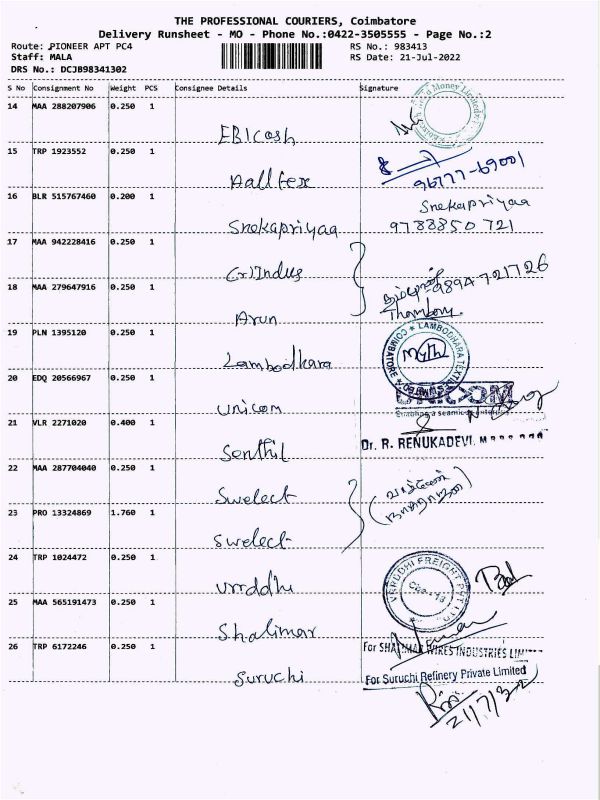 THE PROFESSIONAL COURIERS, Coimbatore
Delivery Runsheet - MO - Phone No.:0422-3505555 - Page No.:2
Route: PIONEER APT PC4 RS No.: 983413
Staff: MALA RS Date: 21-Jul-2022
DRS No.: DCJB98341302
S No Consignment No Weight PCS Consignee Details Signature
14 MAA 288207906 0.250 1
Money Limited
EBIcash
15 TRP 1923552 0.250 1
96777-69001
Aallfex
16 BLR 515767460 0.200 1
Snekapriyaa
Snekapriyaa 9788850721
17 MAA 942228416 0.250 1
9894721726
18 MAA 279647916 0.250 1
Arun
19 PLN 1395120 0.250 1
LAMBODHARA TEXTILE
COIMBATORE
Lambodhara
20 EDQ 20566967 0.250 1
Unicom
21 VLR 2271020 0.400 1
Senthil Dr. R. RENUKADEVI.
22 MAA 287704040 0.250 1
Swelect
23 PRO 13324869 1.760 1
Swelect
24 TRP 1024472 0.250 1
VRRDDHI FREIGHT PVT LTD
Vrrddhi
25 MAA 565191473 0.250 1
Shalimar
26 TRP 6172246 0.250 1 For SHALIMAR WIRES INDUSTRIES
Suruchi For Suruchi Refinery Private Limited
21/7/22